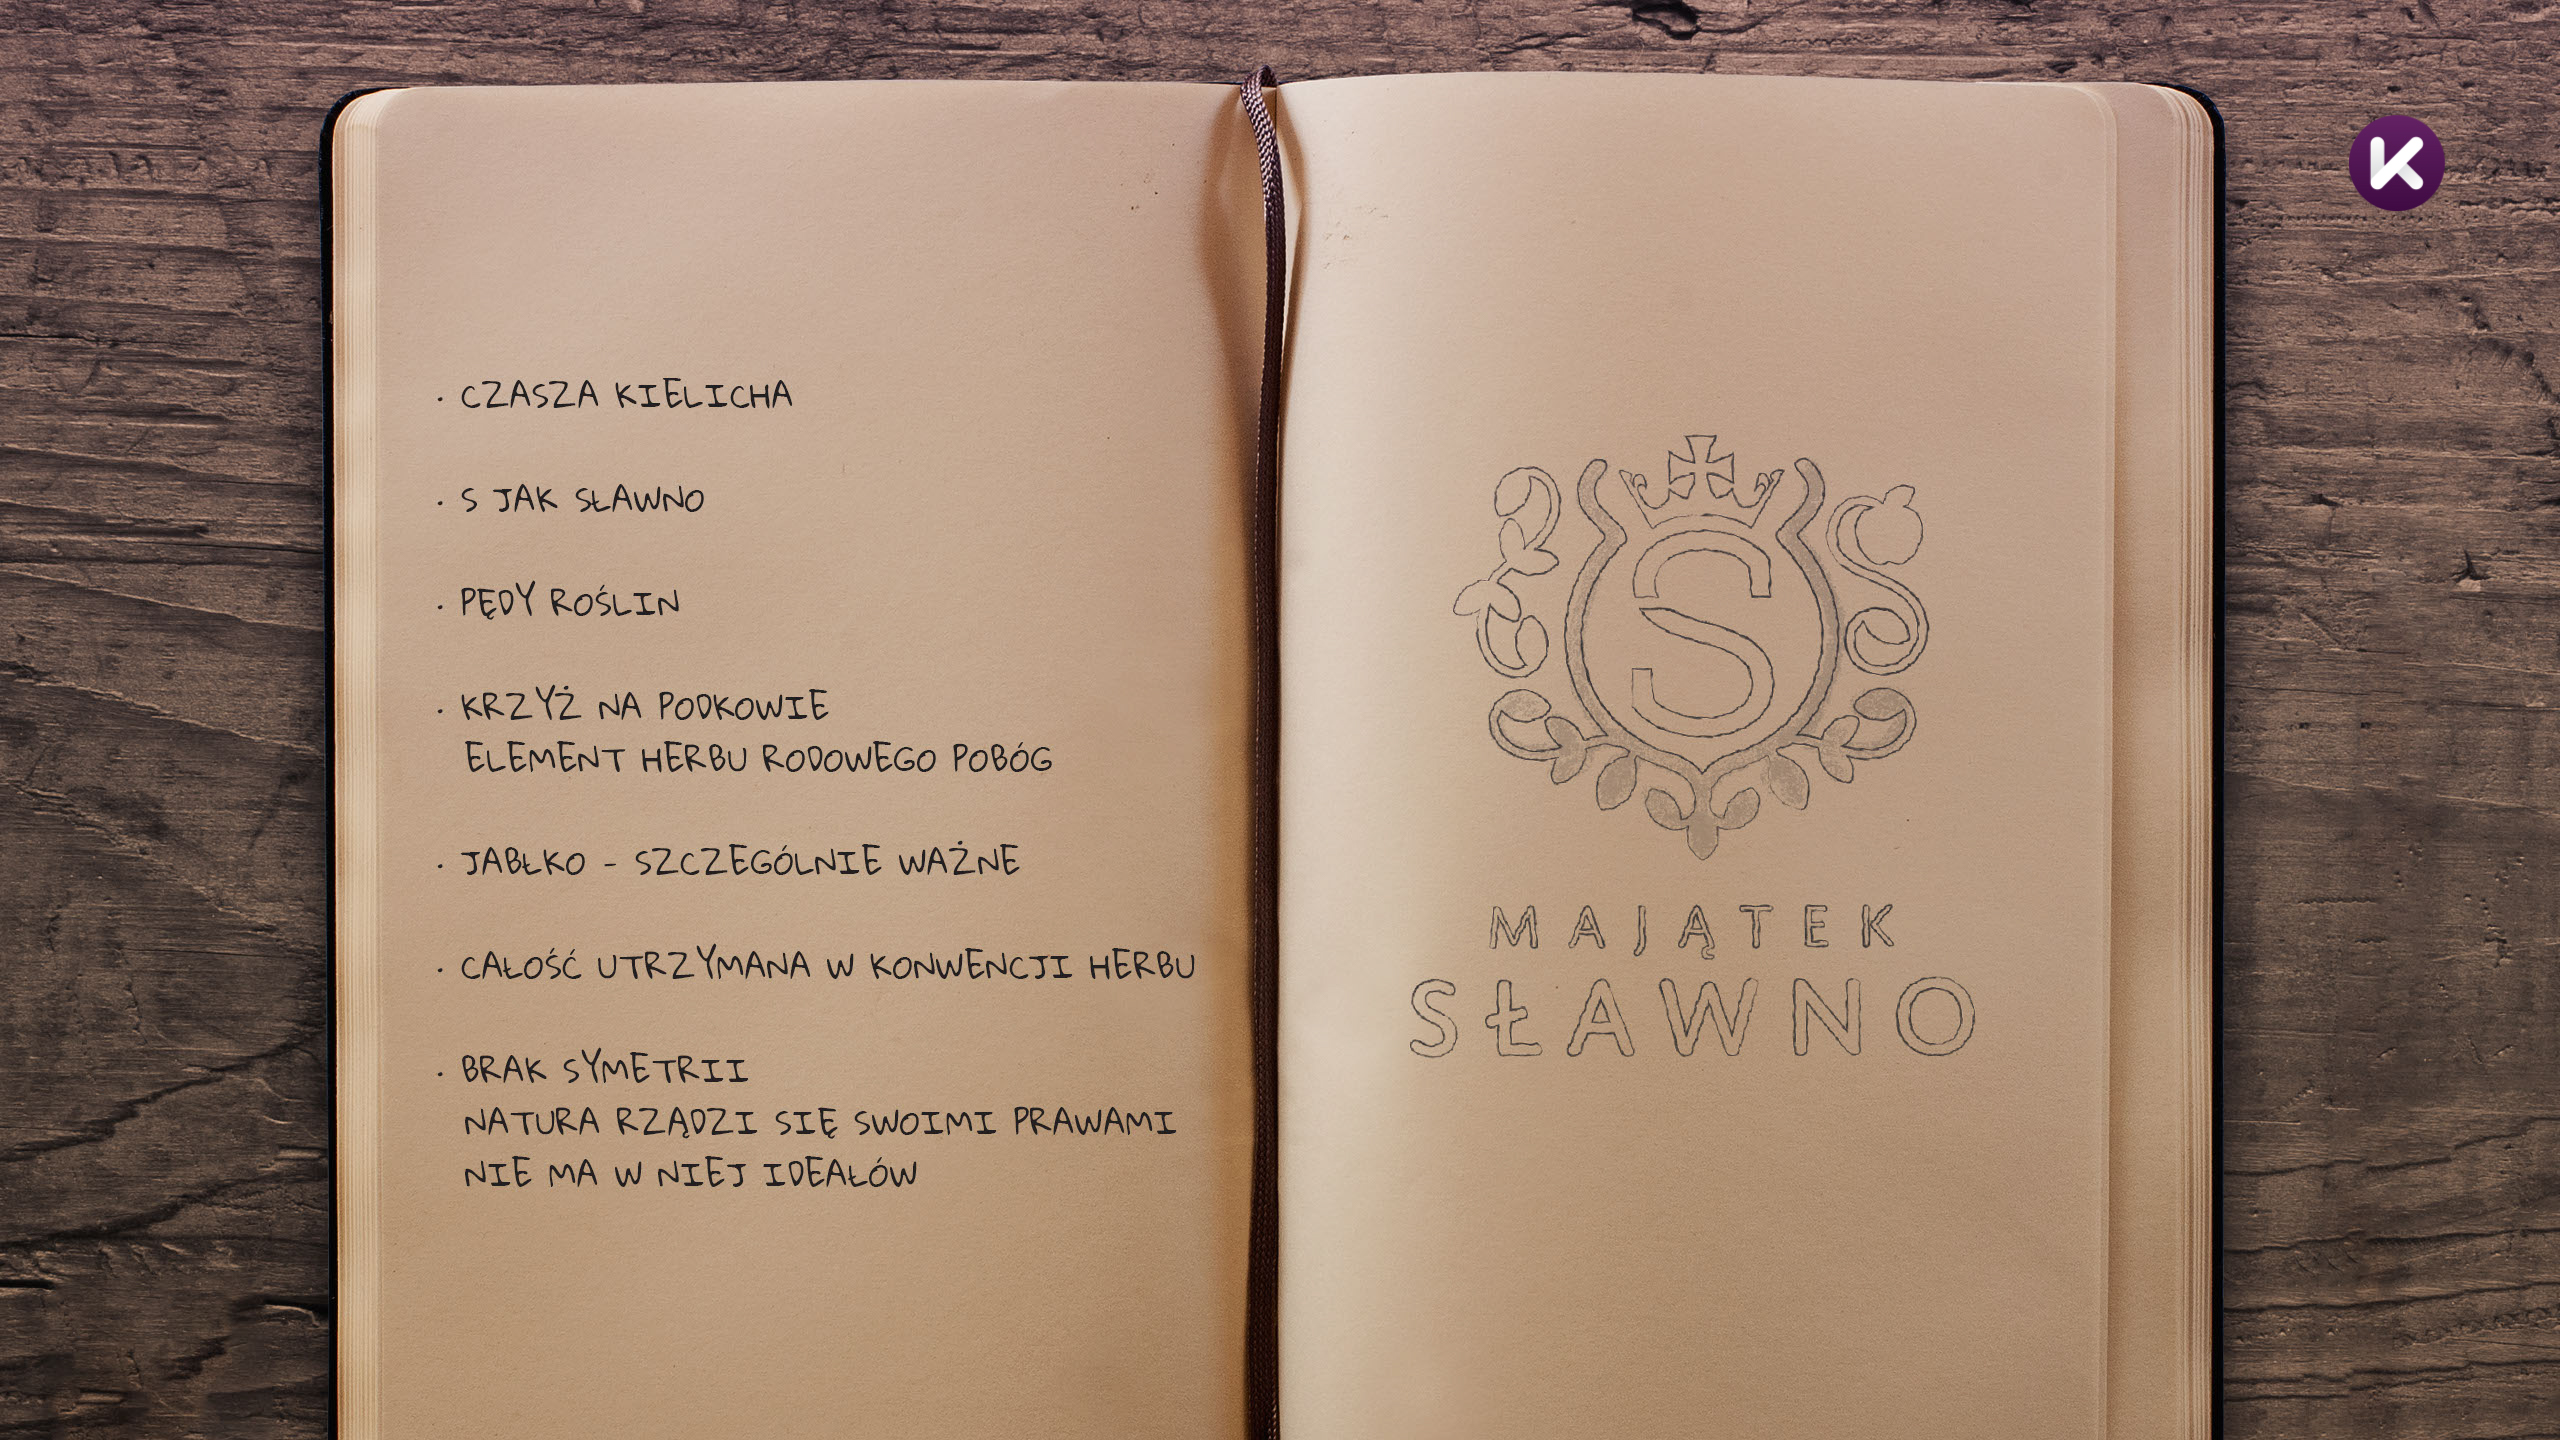 · CZASZA KIELICHA
· S JAK SŁAWNO
· PĘDY ROŚLIN
· KRZYŻ NA PODKOWIE
ELEMENT HERBU RODOWEGO POBÓG
· JABŁKO - SZCZEGÓLNIE WAŻNE
· CAŁOŚĆ UTRZYMANA W KONWENCJI HERBU
· BRAK SYMETRII
NATURA RZĄDZI SIĘ SWOIMI PRAWAMI
NIE MA W NIEJ IDEAŁÓW
S
MAJĄTEK
SŁAWNO
K